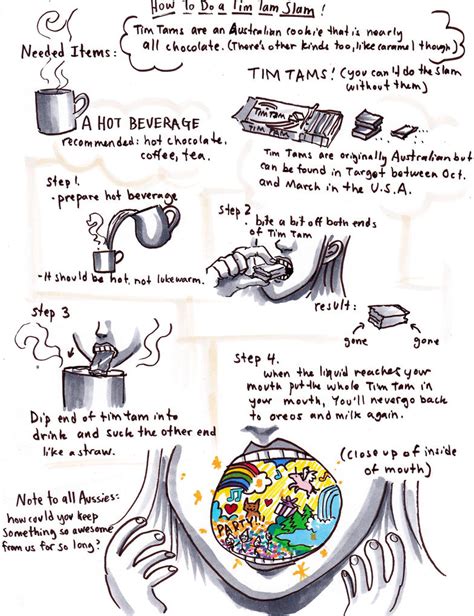 How To Do a Tim Tam Slam!
Tim Tams are an Australian cookie that is nearly
all chocolate. (There's other kinds too, like caramel though)
Needed Items:
TIM TAMS! (you can't do the slam
without them)
Tim Tam
TIM TAM
A HOT BEVERAGE
recommended: hot chocolate,
coffee, tea.
Tim Tams are originally Australian but
can be found in Target between Oct.
and March in the U.S.A.
Step 1.
- prepare hot beverage
- It should be hot, not lukewarm.
Step 2
. bite a bit off both ends
of Tim Tam
result:
gone
gone
Step 3
Dip end of tim tam into
drink and suck the other end
like a straw.
Step 4.
When the liquid reaches your
mouth put the whole Tim Tam in
your mouth, You'll never go back
to oreos and milk again.
(Close up of inside
of mouth)
PARTY
Note to all Aussies:
how could you keep
something so awesome
from us for so long?